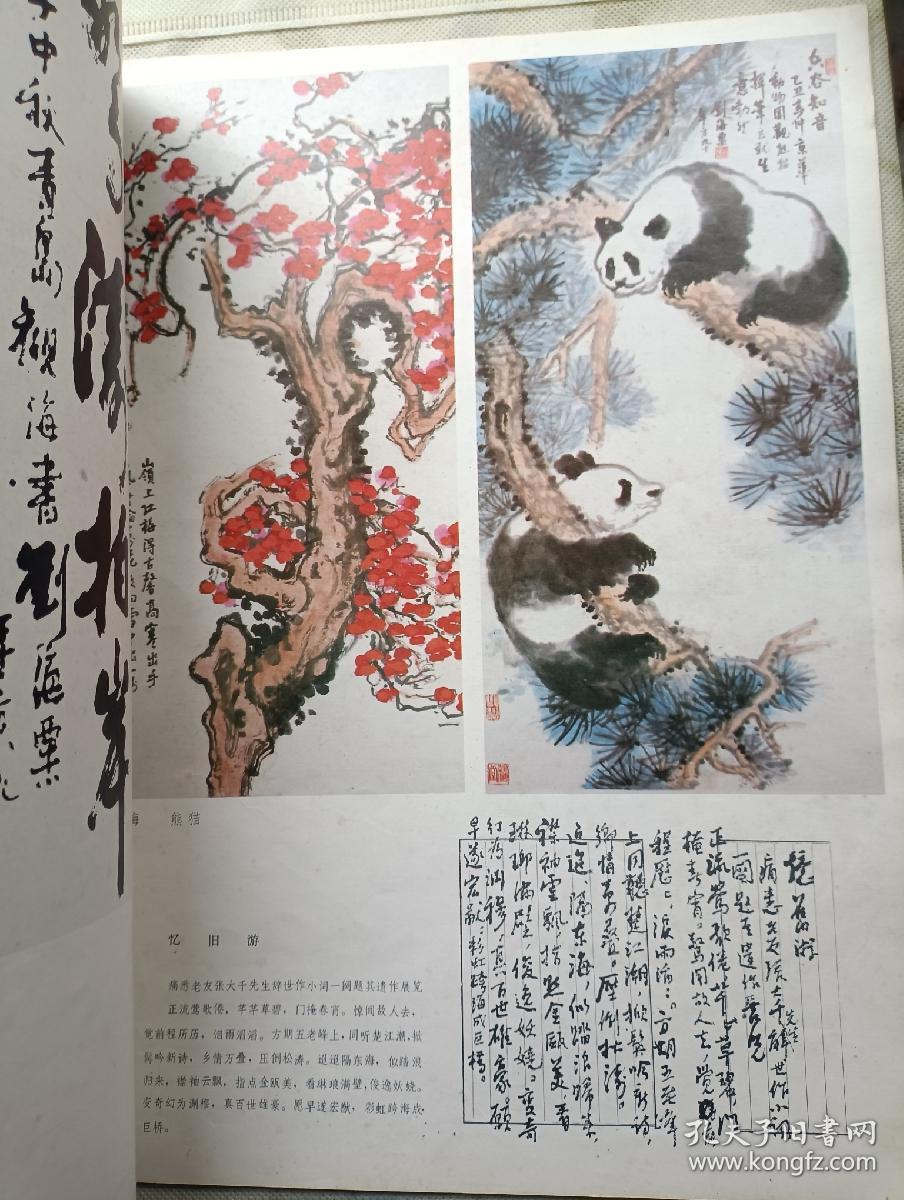 中秋青岛观海书刘海粟
岭上红梅得古馨高寒出手
空谷知音
乙丑春仲京华
动物园观熊猫
挥笔
刘海粟
梅 熊猫
忆旧游
痛悉老友张大千先生辞世作小词一阕题其遗作展览
正流莺歌倦，芊芊草碧，门掩春宵。惊闻故人去，
觉前程历历，泪雨滔滔。方期五老峰上，同听楚江潮，掀
髯吟新诗，乡情万叠，压倒松涛。迢迢隔东海，似踏浪
归来，襟袖云飘，指点金瓯美，看琳琅满壁，俊逸妖娆。
变奇幻为渊穆，真百世雄豪。愿早遂宏猷，彩虹跨海成
巨桥。
忆旧游
痛悉老友张大千先生辞世作小词
一阕题其遗作展览
正流莺歌倦芊芊草碧门
掩春宵。惊闻故人去，觉前
程历历，泪雨滔滔。方期五老峰
上同听楚江潮，掀髯吟新诗，
乡情万叠。压倒松涛。
迢迢隔东海，似踏浪归来，
襟袖云飘，指点金瓯美，看
琳琅满壁，俊逸妖娆。变奇
幻为渊穆，真百世雄豪。愿
早遂宏猷，彩虹跨海成巨桥。
孔夫子旧书网
www.kongfz.com